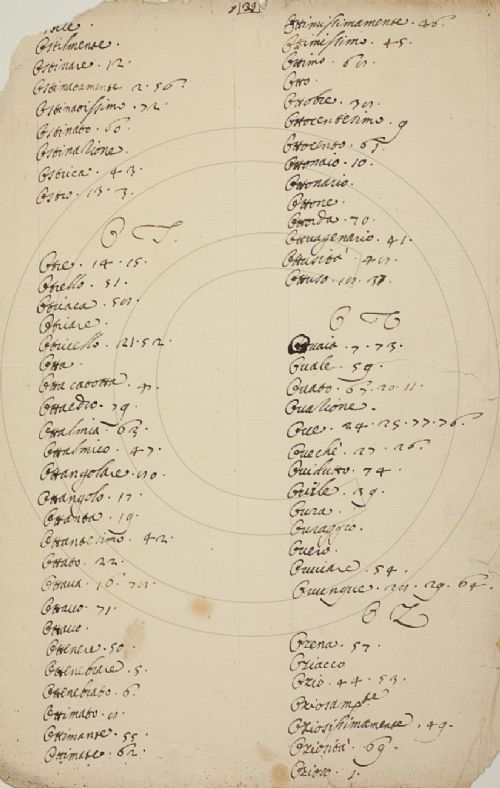 139
Ostilmente.
Ostinare. 12.
Ostinatamente. 2. 56.
Ostinatissimo. 72.
Ostinato. 60.
Ostinatione.
Ostrica. 43.
Ostro. 13. 3.
O T.
Otre. 14. 15.
Otriaca.
Otriare.
Otricello. 21. 52.
Otta.
Otta catotta.
Ottaedro. 79.
Ottalmia. 63.
Ottalmico. 47.
Ottangolare.
Ottangolo. 17.
Ottanta. 19.
Ottantesimo. 42.
Ottato. 22.
Ottava. 16.
Ottavo. 71.
Ottavo.
Ottenere. 50.
Ottenebrare. 5.
Ottenebrato. 6
Ottimato.
Ottimante. 55.
Ottimate. 62.
Ottimissimamente. 46.
Ottimissimo. 45.
Ottimo.
Otto.
Ottobre.
Ottocentesimo. 9
Ottocento. 65.
Ottonaio. 10.
Ottonario.
Ottone.
70.
Ottuagenario. 41.
Ottusità.
Ottuso.
O V
Ovaia. 7. 73.
Ovale. 59.
Ovato. 65. 20. 11.
Ovazione.
Ove. 24. 25. 77. 76.
Ovechè. 27. 26.
Ovidutto. 74.
Ovile. 39.
Ovra.
Ovraggio.
Overo.
Ovviare. 54.
Ovunque. 29. 64.
O Z
Ozena. 57.
Oziacco
Ozio. 44. 53.
Oziosamte
Oziosissimamente. 49.
Oziosità. 69.
Ozioso. 1.